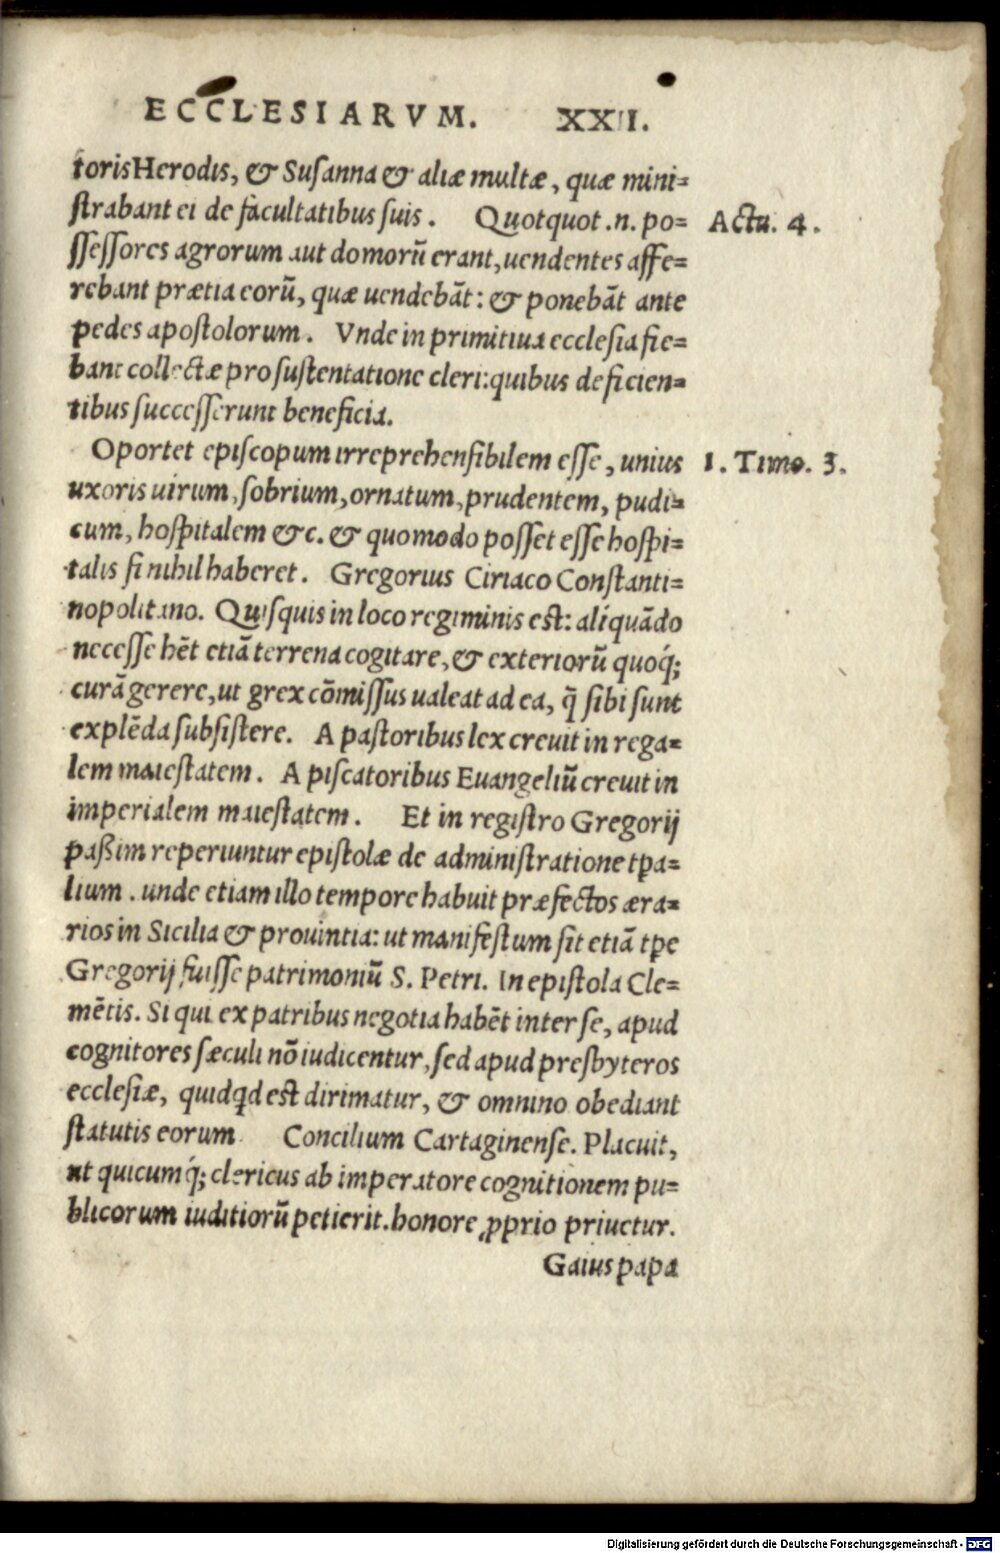 ECCLESIARVM. XXII.
toris Herodis, & Susanna & aliæ multæ, quæ mini=
strabant ei de facultatibus suis. Quotquot .n. po= Actu. 4.
ssessores agrorum aut domorũ erant, uendentes affe=
rebant prætia eorũ, quæ uendebãt: & ponebãt ante
pedes apostolorum. Vnde in primitiua ecclesia fie=
bant collectæ pro sustentatione cleri: quibus deficien=
tibus successerunt beneficia.
Oportet episcopum irreprehensibilem esse, unius 1. Timo. 3.
uxoris uirum, sobrium, ornatum, prudentem, pudi=
cum, hospitalem &c. & quomodo posset esse hospi=
talis si nihil haberet. Gregorius Ciriaco Constanti=
nopolitano. Quisquis in loco regiminis est: aliquãdo
necesse hẽt etiã terrena cogitare, & exteriorũ quoq́;
curã gerere, ut grex cõmissus ualeat ad ea, q̃ sibi sunt
explẽda subsistere. A pastoribus lex creuit in rega=
lem maiestatem. A piscatoribus Euangeliũ creuit in
imperialem maiestatem. Et in registro Gregorij
paßim reperiuntur epistolæ de administratione tpa=
lium. unde etiam illo tempore habuit præfectos æra=
rios in Sicilia & prouintia: ut manifestum sit etiã tpe
Gregorij fuisse patrimoniũ S. Petri. In epistola Cle=
mẽtis. Si qui ex patribus negotia habẽt inter se, apud
cognitores sæculi nõ iudicentur, sed apud presbyteros
ecclesiæ, quidqd est dirimatur, & omnino obediant
statutis eorum Concilium Cartaginense. Placuit,
ut quicumq́; clericus ab imperatore cognitionem pu=
blicorum iuditiorũ petierit. honore ꝓprio priuetur.
Gaius papa
Digitalisierung gefördert durch die Deutsche Forschungsgemeinschaft - DFG